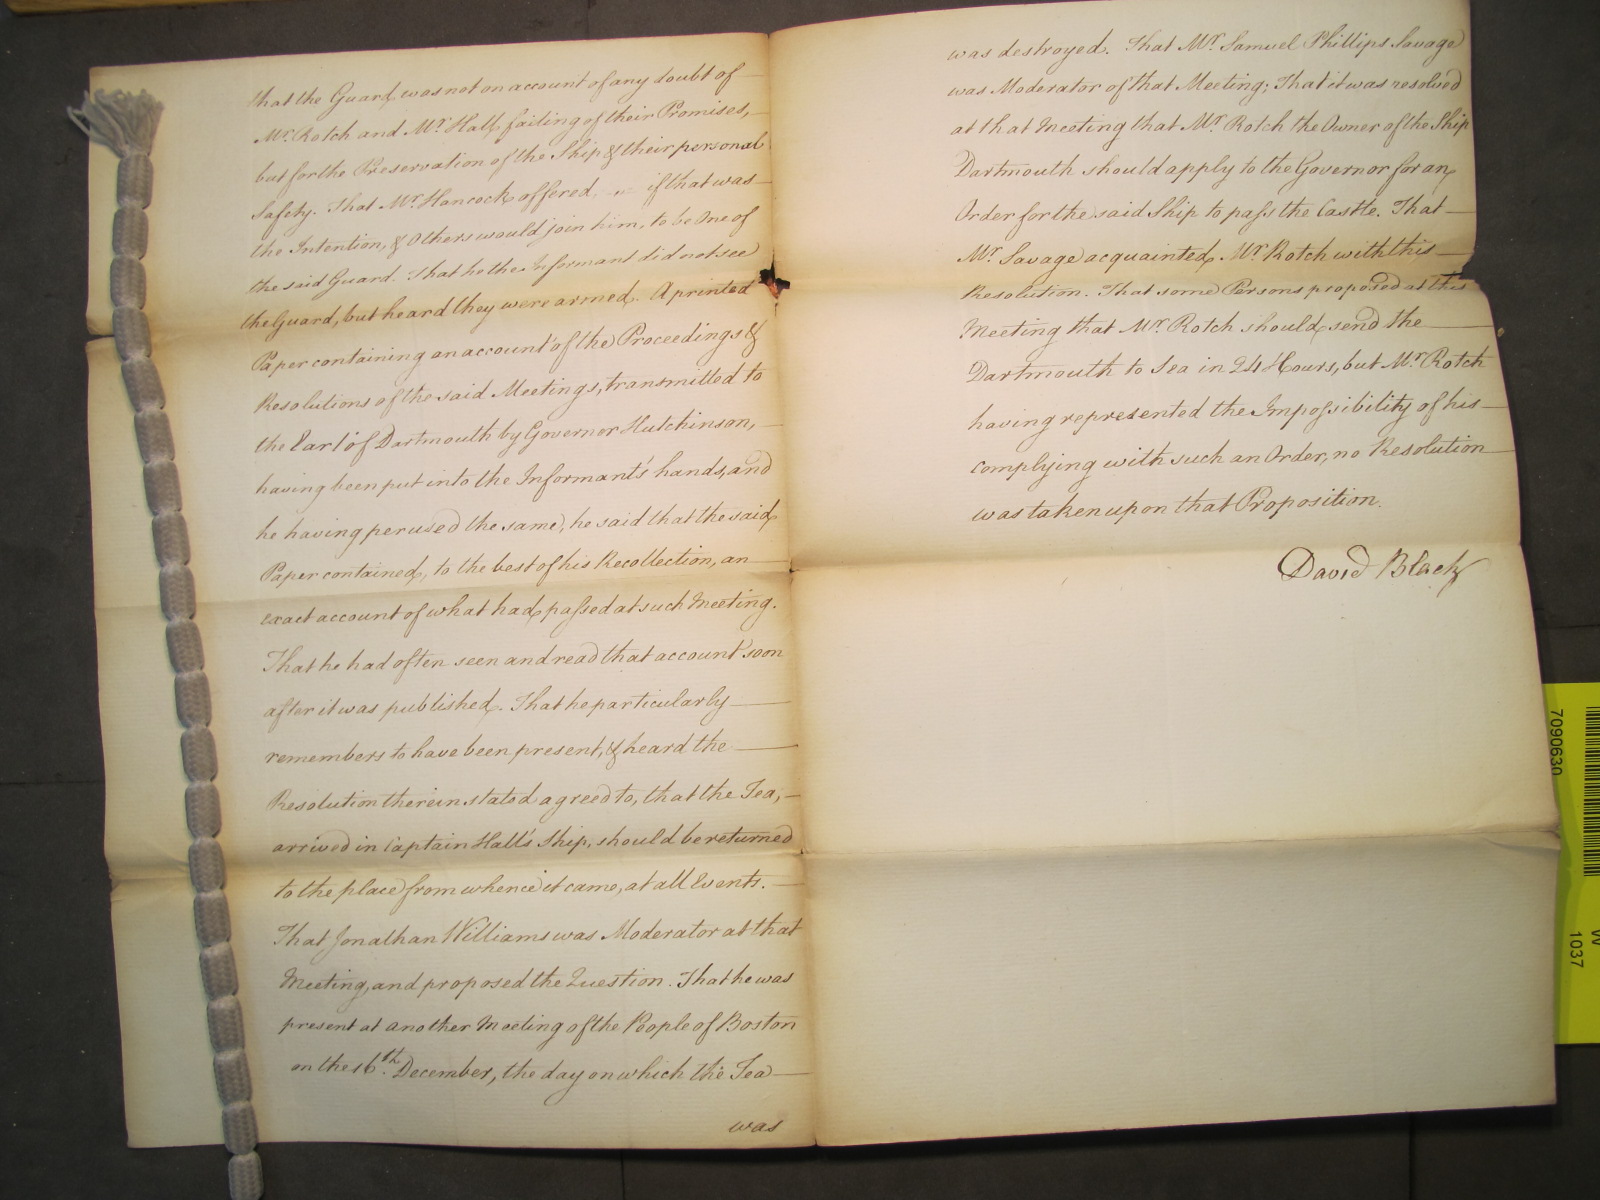 that the Guard was not on account of any doubt of
Mr. Rotch and Mr. Hall failing of their Promises,
but for the Preservation of the Ship & their personal
Safety. That Mr. Hancock offered, if that was
the Intention, & Others would join him, to be One of
the said Guard. That he the Informant did not see
the Guard, but heard they were armed. A printed
Paper containing an account of the Proceedings &
Resolutions of the said Meetings, transmitted to
the Earl of Dartmouth by Governor Hutchinson,
having been put into the Informant's hands, and
he having perused the same, he said that the said
Paper contained, to the best of his Recollection, an
exact account of what had passed at such Meeting.
That he had often seen and read that account soon
after it was published. That he particularly
remembers to have been present, & heard the
Resolution therein stated agreed to, that the Tea,
arrived in Captain Hall's Ship, should be returned
to the place from whence it came, at all Events.
That Jonathan Williams was Moderator at that
Meeting, and proposed the Question. That he was
present at another Meeting of the People of Boston
on the 16th. December, the day on which the Tea
was
was destroyed. That Mr. Samuel Phillips Savage
was Moderator of that Meeting; That it was resolved
at that Meeting that Mr. Rotch the Owner of the Ship
Dartmouth should apply to the Governor for an
Order for the said Ship to pass the Castle. That
Mr. Savage acquainted Mr. Rotch with this
Resolution. That some Persons proposed at this
Meeting that Mr. Rotch should send the
Dartmouth to Sea in 24 Hours, but Mr. Rotch
having represented the Impossibility of his
complying with such an Order, no Resolution
was taken upon that Proposition.
David Black
7090630
W
1037